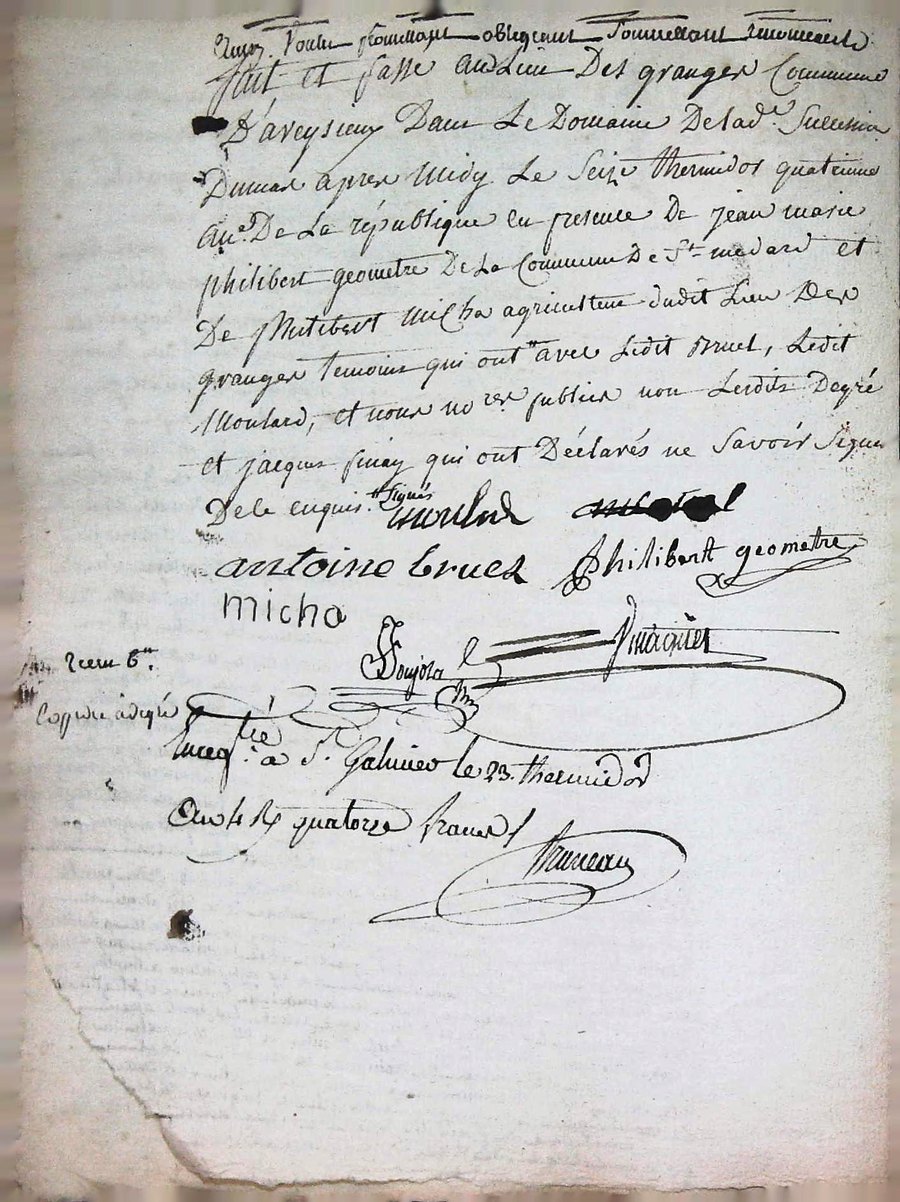 voulu promettant obligeant Soumettant renonceant
fait et passé au Lieu Des granges Commune
D'aveysieux Dans Le Domaine De lad.e Succession
Dumas apres midy Le Seize thermidor quatrieme
an.e De La république en presence De jean marie
philibert geometre De La Commune De St medard et
De philibert micha agriculteur dudit Lieu Des
granges temoins qui ont avec Ledit Bruel, Ledit
Moulard, et nous no.res publics non Lesdits Degré
et jacques finay qui ont Déclarés ne Savoir Signer
De ce enquis. Signés
moulard
antoine bruel Philibert geometre
micha
Recu 6.
Copie
Enreg.tré à St Galmier le 23. thermidor
an 4 R quatorze francs